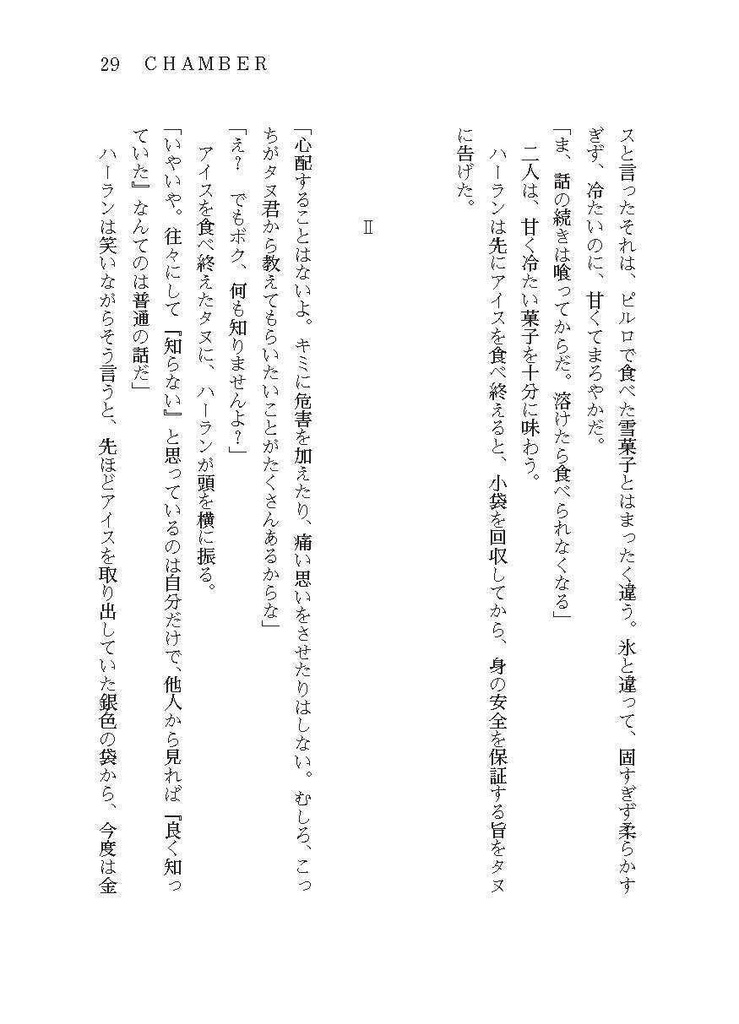 29　CHAMBER
スと言ったそれは、ピルロで食べた雪菓子とはまったく違う。氷と違って、固すぎず柔らかす
ぎず、冷たいのに、甘くてまろやかだ。
「ま、話の続きは喰ってからだ。溶けたら食べられなくなる」
　二人は、甘く冷たい菓子を十分に味わう。
　ハーランは先にアイスを食べ終えると、小袋を回収してから、身の安全を保証する旨をタヌ
に告げた。
Ⅱ
「心配することはないよ。キミに危害を加えたり、痛い思いをさせたりはしない。むしろ、こっ
ちがタヌ君から教えてもらいたいことがたくさんあるからな」
「え？　でもボク、何も知りませんよ？」
　アイスを食べ終えたタヌに、ハーランが頭を横に振る。
「いやいや。往々にして『知らない』と思っているのは自分だけで、他人から見れば『良く知っ
ていた』なんてのは普通の話だ」
　ハーランは笑いながらそう言うと、先ほどアイスを取り出していた銀色の袋から、今度は金